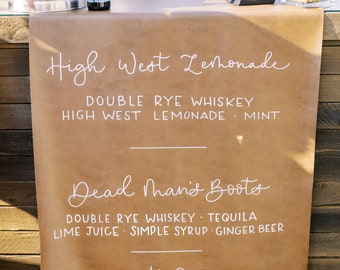 High West Lemonade
DOUBLE RYE WHISKEY
HIGH WEST LEMONADE · MINT
Dead Man's Boots
DOUBLE RYE WHISKEY · TEQUILA
LIME JUICE · SIMPLE SYRUP · GINGER BEER